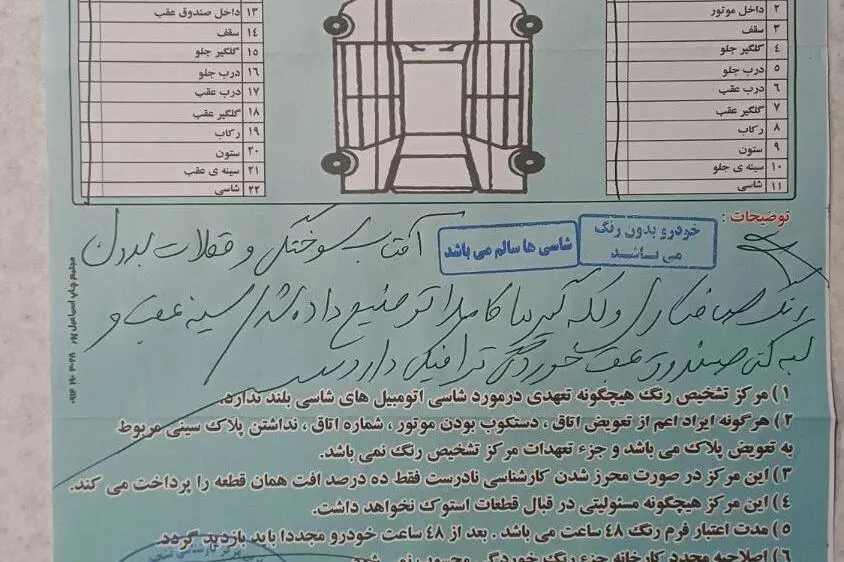 داخل موتور ۲
سقف ۳
گلگیر جلو ۴
درب جلو ۵
درب عقب ۶
گلگیر عقب ۷
رکاب ۸
ستون ۹
سینه ی جلو ۱۰
شاسی ۱۱
داخل صندوق عقب ۱۳
سقف ۱۴
گلگیر جلو ۱۵
درب جلو ۱۶
درب عقب ۱۷
گلگیر عقب ۱۸
رکاب ۱۹
ستون ۲۰
سینه ی عقب ۲۱
شاسی ۲۲
توضیحات :
خودرو بدون رنگ
می باشد
شاسی ها سالم می باشد
آفتاب سوختگی و بدون
رنگ صافکاری و لکه گیریها کاملا توضیح داده شد سینه عقب و
لبه کف صندوق عقب خوردگی ترافیکی دارد
۱) مرکز تشخیص رنگ هیچگونه تعهدی درمورد شاسی اتومبیل های شاسی بلند ندارد.
۲) هرگونه ایراد اعم از تعویض اتاق ، دستکوب بودن موتور ، شماره اتاق ، نداشتن پلاک سینی مربوط
به تعویض پلاک می باشد و جزء تعهدات مرکز تشخیص رنگ نمی باشد.
۳) این مرکز در صورت محرز شدن کارشناسی نادرست فقط ده درصد افت همان قطعه را پرداخت می کند.
۴) این مرکز هیچگونه مسئولیتی در قبال قطعات استوک نخواهد داشت.
۵) مدت اعتبار فرم رنگ ۴۸ ساعت می باشد . بعد از ۴۸ ساعت خودرو مجددا باید بازدید گردد.
۶) اصلاحیه مجدد کارخانه جزء رنگ خوردگی محسوب نمی شود
مجتمع چاپ اسماعیل پور